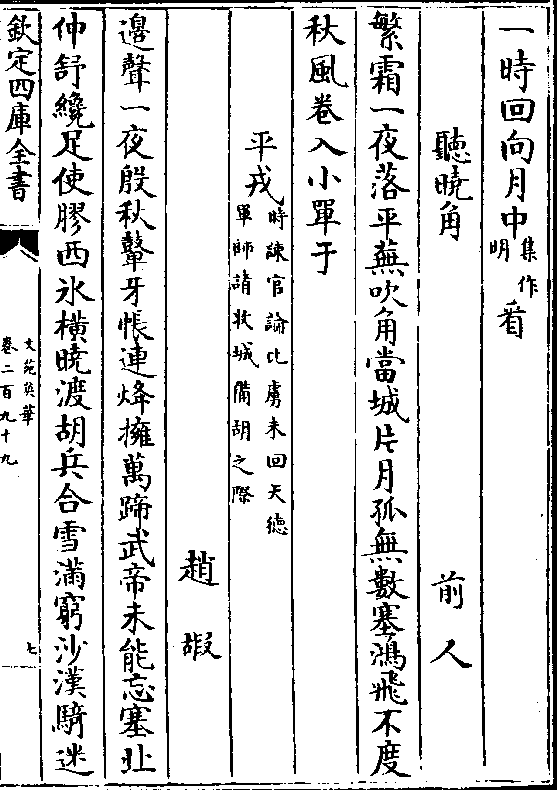 一時回向月中集作明看
聽曉角
前人
繁霜一夜落平蕪吹角當城片月孤無數塞鴻飛不度
秋風卷入小單于
平戎時諫官論北虜未回天德軍師請狀城備胡之際
趙嘏
邊聲一夜殷秋鼙牙帳連烽擁萬蹄武帝未能忘塞北
仲舒纔足使膠西氷橫曉渡胡兵合雪滿窮沙漢騎迷
欽定四庫全書
文苑英華
卷二百九十九
七